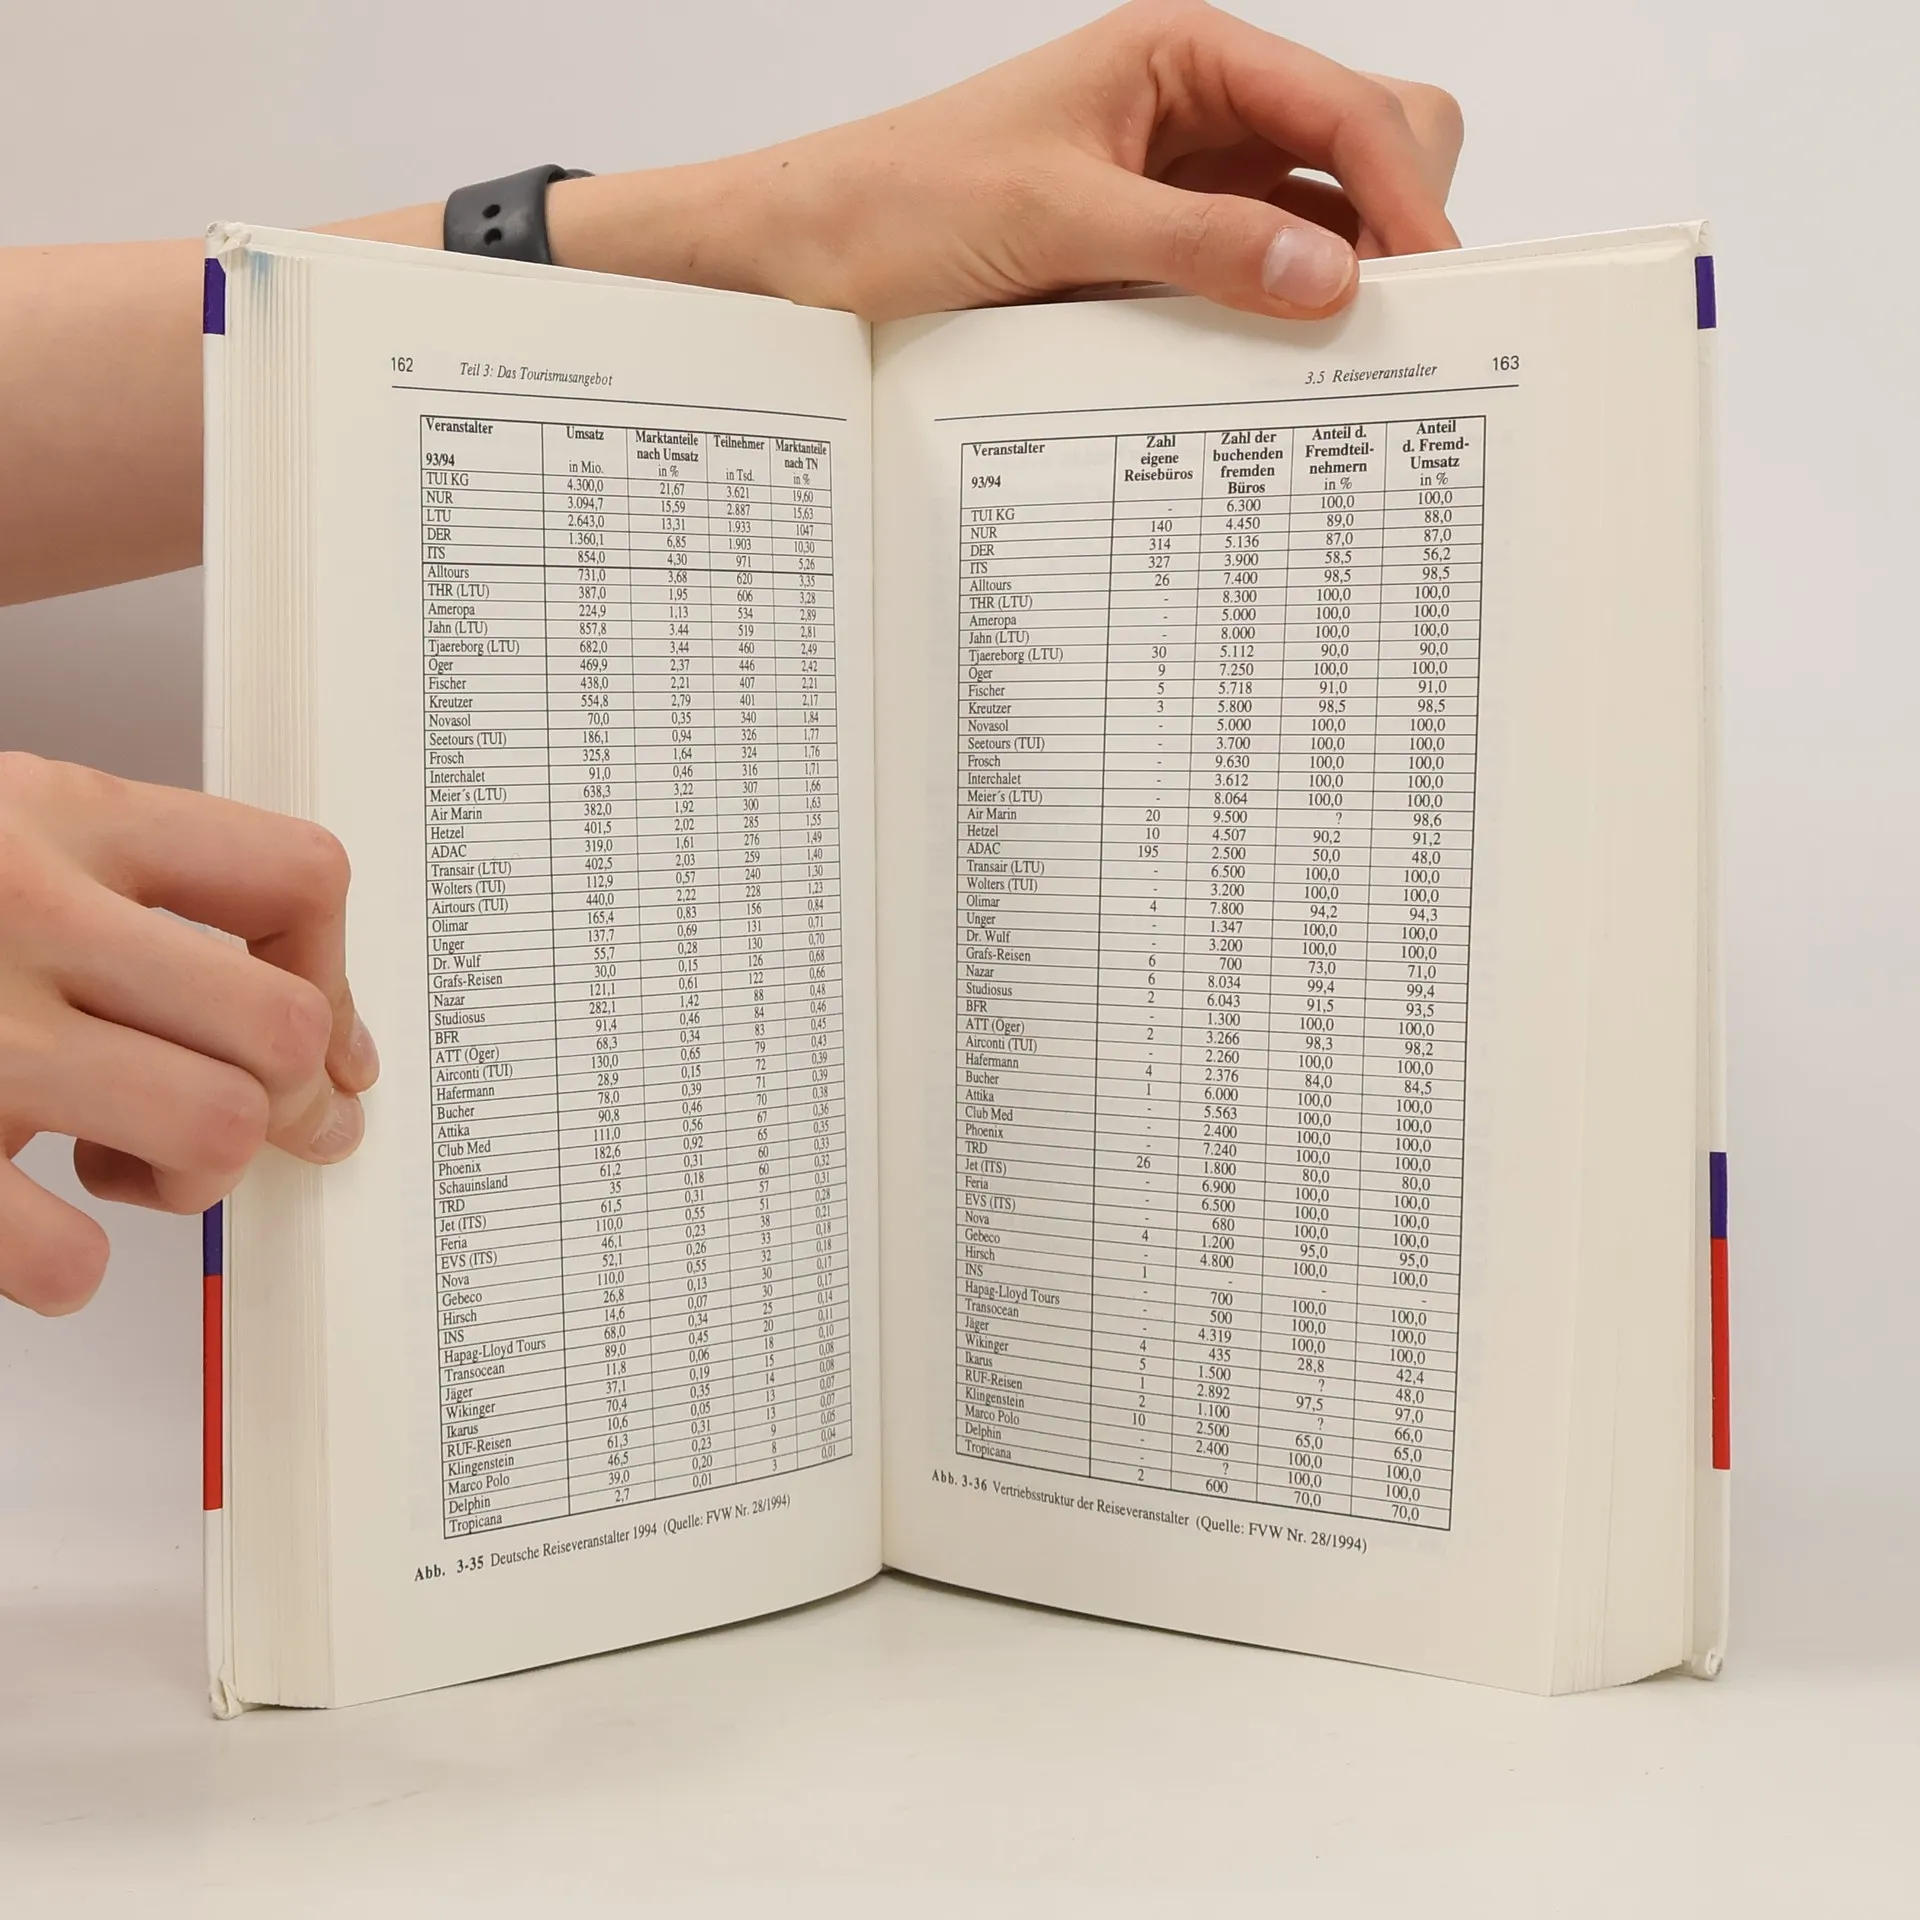 162 Teil 3: Das Tourismusangebot
Veranstalter Umsatz Marktanteile Teilnehmer Marktanteile
nach Umsatz nach TN
93/94 in Mio. in % in Tsd. in %
TUI KG 4.300,0 21,67 3.621 19,60
NUR 3.094,7 15,59 2.887 15,63
LTU 2.643,0 13,31 1.933 1047
DER 1.360,1 6,85 1.903 10,30
ITS 854,0 4,30 971 5,26
Alltours 731,0 3,68 620 3,35
THR (LTU) 387,0 1,95 606 3,28
Ameropa 224,9 1,13 534 2,89
Jahn (LTU) 857,8 3.44 519 2,81
Tjaereborg (LTU) 682,0 3,44 460 2,49
Öger 469,9 2,37 446 2,42
Fischer 438,0 2,21 407 2,21
Kreutzer 554,8 2,79 401 2,17
Novasol 70,0 0,35 340 1,84
Seetours (TUI) 186,1 0,94 326 1,77
Frosch 325,8 1,64 324 1,76
Interchalet 91,0 0,46 316 1,71
Meier´s (LTU) 638,3 3,22 307 1,66
Air Marin 382,0 1,92 300 1,63
Hetzel 401,5 2,02 285 1,55
ADAC 319,0 1,61 276 1,49
Transair (LTU) 402,5 2,03 259 1,40
Wolters (TUI) 112,9 0,57 240 1,30
Airtours (TUI) 440,0 2,22 228 1,23
Olimar 165,4 0,83 156 0,84
Unger 137,7 0,69 131 0,71
Dr. Wulf 55,7 0,28 130 0,70
Grafs-Reisen 30,0 0,15 126 0,68
Nazar 121,1 0,61 122 0,66
Studiosus 282,1 1,42 88 0,48
BFR 91,4 0,46 84 0,46
ATT (Öger) 68,3 0,34 83 0,45
Airconti (TUI) 130,0 0,65 79 0,43
Hafermann 28,9 0,15 72 0,39
Bucher 78,0 0,39 71 0,39
Attika 90,8 0,46 70 0,38
Club Med 111,0 0,56 67 0,36
Phoenix 182,6 0,92 65 0,35
Schauinsland 61,2 0,31 60 0,33
TRD 35 0,18 60 0,32
Jet (ITS) 61,5 0,31 57 0,31
Feria 110,0 0,55 51 0,28
EVS (ITS) 46,1 0,23 38 0,21
Nova 52,1 0,26 33 0,18
Gebeco 110,0 0,55 32 0,18
Hirsch 26,8 0,13 30 0,17
INS 14,6 0,07 30 0,17
Hapag-Lloyd Tours 68,0 0,34 25 0,14
Transocean 89,0 0,45 20 0,11
Jäger 11,8 0,06 18 0,10
Wikinger 37,1 0,19 15 0,08
Ikarus 70,4 0,35 14 0,08
RUF-Reisen 10,6 0,05 13 0,07
Klingenstein 61,3 0,31 13 0,07
Marco Polo 46,5 0,23 9 0,05
Delphin 39,0 0,20 8 0,04
Tropicana 2,7 0,01 3 0,01
Abb. 3-35 Deutsche Reiseveranstalter 1994 (Quelle: FVW Nr. 28/1994)
3.5 Reiseveranstalter 163
Veranstalter Zahl Zahl der Anteil d. Anteil
eigene buchenden Fremdteil- d. Fremd-
Reisebüros fremden nehmern Umsatz
93/94 Büros in % in %
TUI KG - 6.300 100,0 100,0
NUR 140 4.450 89,0 88,0
DER 314 5.136 87,0 87,0
ITS 327 3.900 58,5 56,2
Alltours 26 7.400 98,5 98,5
THR (LTU) - 8.300 100,0 100,0
Ameropa - 5.000 100,0 100,0
Jahn (LTU) - 8.000 100,0 100,0
Tjaereborg (LTU) 30 5.112 90,0 90,0
Öger 9 7.250 100,0 100,0
Fischer 5 5.718 91,0 91,0
Kreutzer 3 5.800 98,5 98,5
Novasol - 5.000 100,0 100,0
Seetours (TUI) - 3.700 100,0 100,0
Frosch - 9.630 100,0 100,0
Interchalet - 3.612 100,0 100,0
Meier´s (LTU) - 8.064 100,0 100,0
Air Marin 20 9.500 ? 98,6
Hetzel 10 4.507 90,2 91,2
ADAC 195 2.500 50,0 48,0
Transair (LTU) - 6.500 100,0 100,0
Wolters (TUI) - 3.200 100,0 100,0
Olimar 4 7.800 94,2 94,3
Unger - 1.347 100,0 100,0
Dr. Wulf - 3.200 100,0 100,0
Grafs-Reisen 6 700 73,0 71,0
Nazar 6 8.034 99,4 99,4
Studiosus 2 6.043 91,5 93,5
BFR - 1.300 100,0 100,0
ATT (Öger) 2 3.266 98,3 98,2
Airconti (TUI) - 2.260 100,0 100,0
Hafermann 4 2.376 84,0 84,5
Bucher 1 6.000 100,0 100,0
Attika - 5.563 100,0 100,0
Club Med - 2.400 100,0 100,0
Phoenix - 7.240 100,0 100,0
TRD 26 1.800 80,0 80,0
Jet (ITS) - 6.900 100,0 100,0
Feria - 6.500 100,0 100,0
EVS (ITS) - 680 100,0 100,0
Nova 4 1.200 95,0 95,0
Gebeco - 4.800 100,0 100,0
Hirsch 1 - - -
INS - 700 100,0 100,0
Hapag-Lloyd Tours - 500 100,0 100,0
Transocean - 4.319 100,0 100,0
Jäger 4 435 28,8 42,4
Wikinger 5 1.500 ? 48,0
Ikarus 1 2.892 97,5 97,0
RUF-Reisen 2 1.100 ? 66,0
Klingenstein 10 2.500 65,0 65,0
Marco Polo - 2.400 100,0 100,0
Delphin - ? 100,0 100,0
Tropicana 2 600 70,0 70,0
Abb. 3-36 Vertriebsstruktur der Reiseveranstalter (Quelle: FVW Nr. 28/1994)